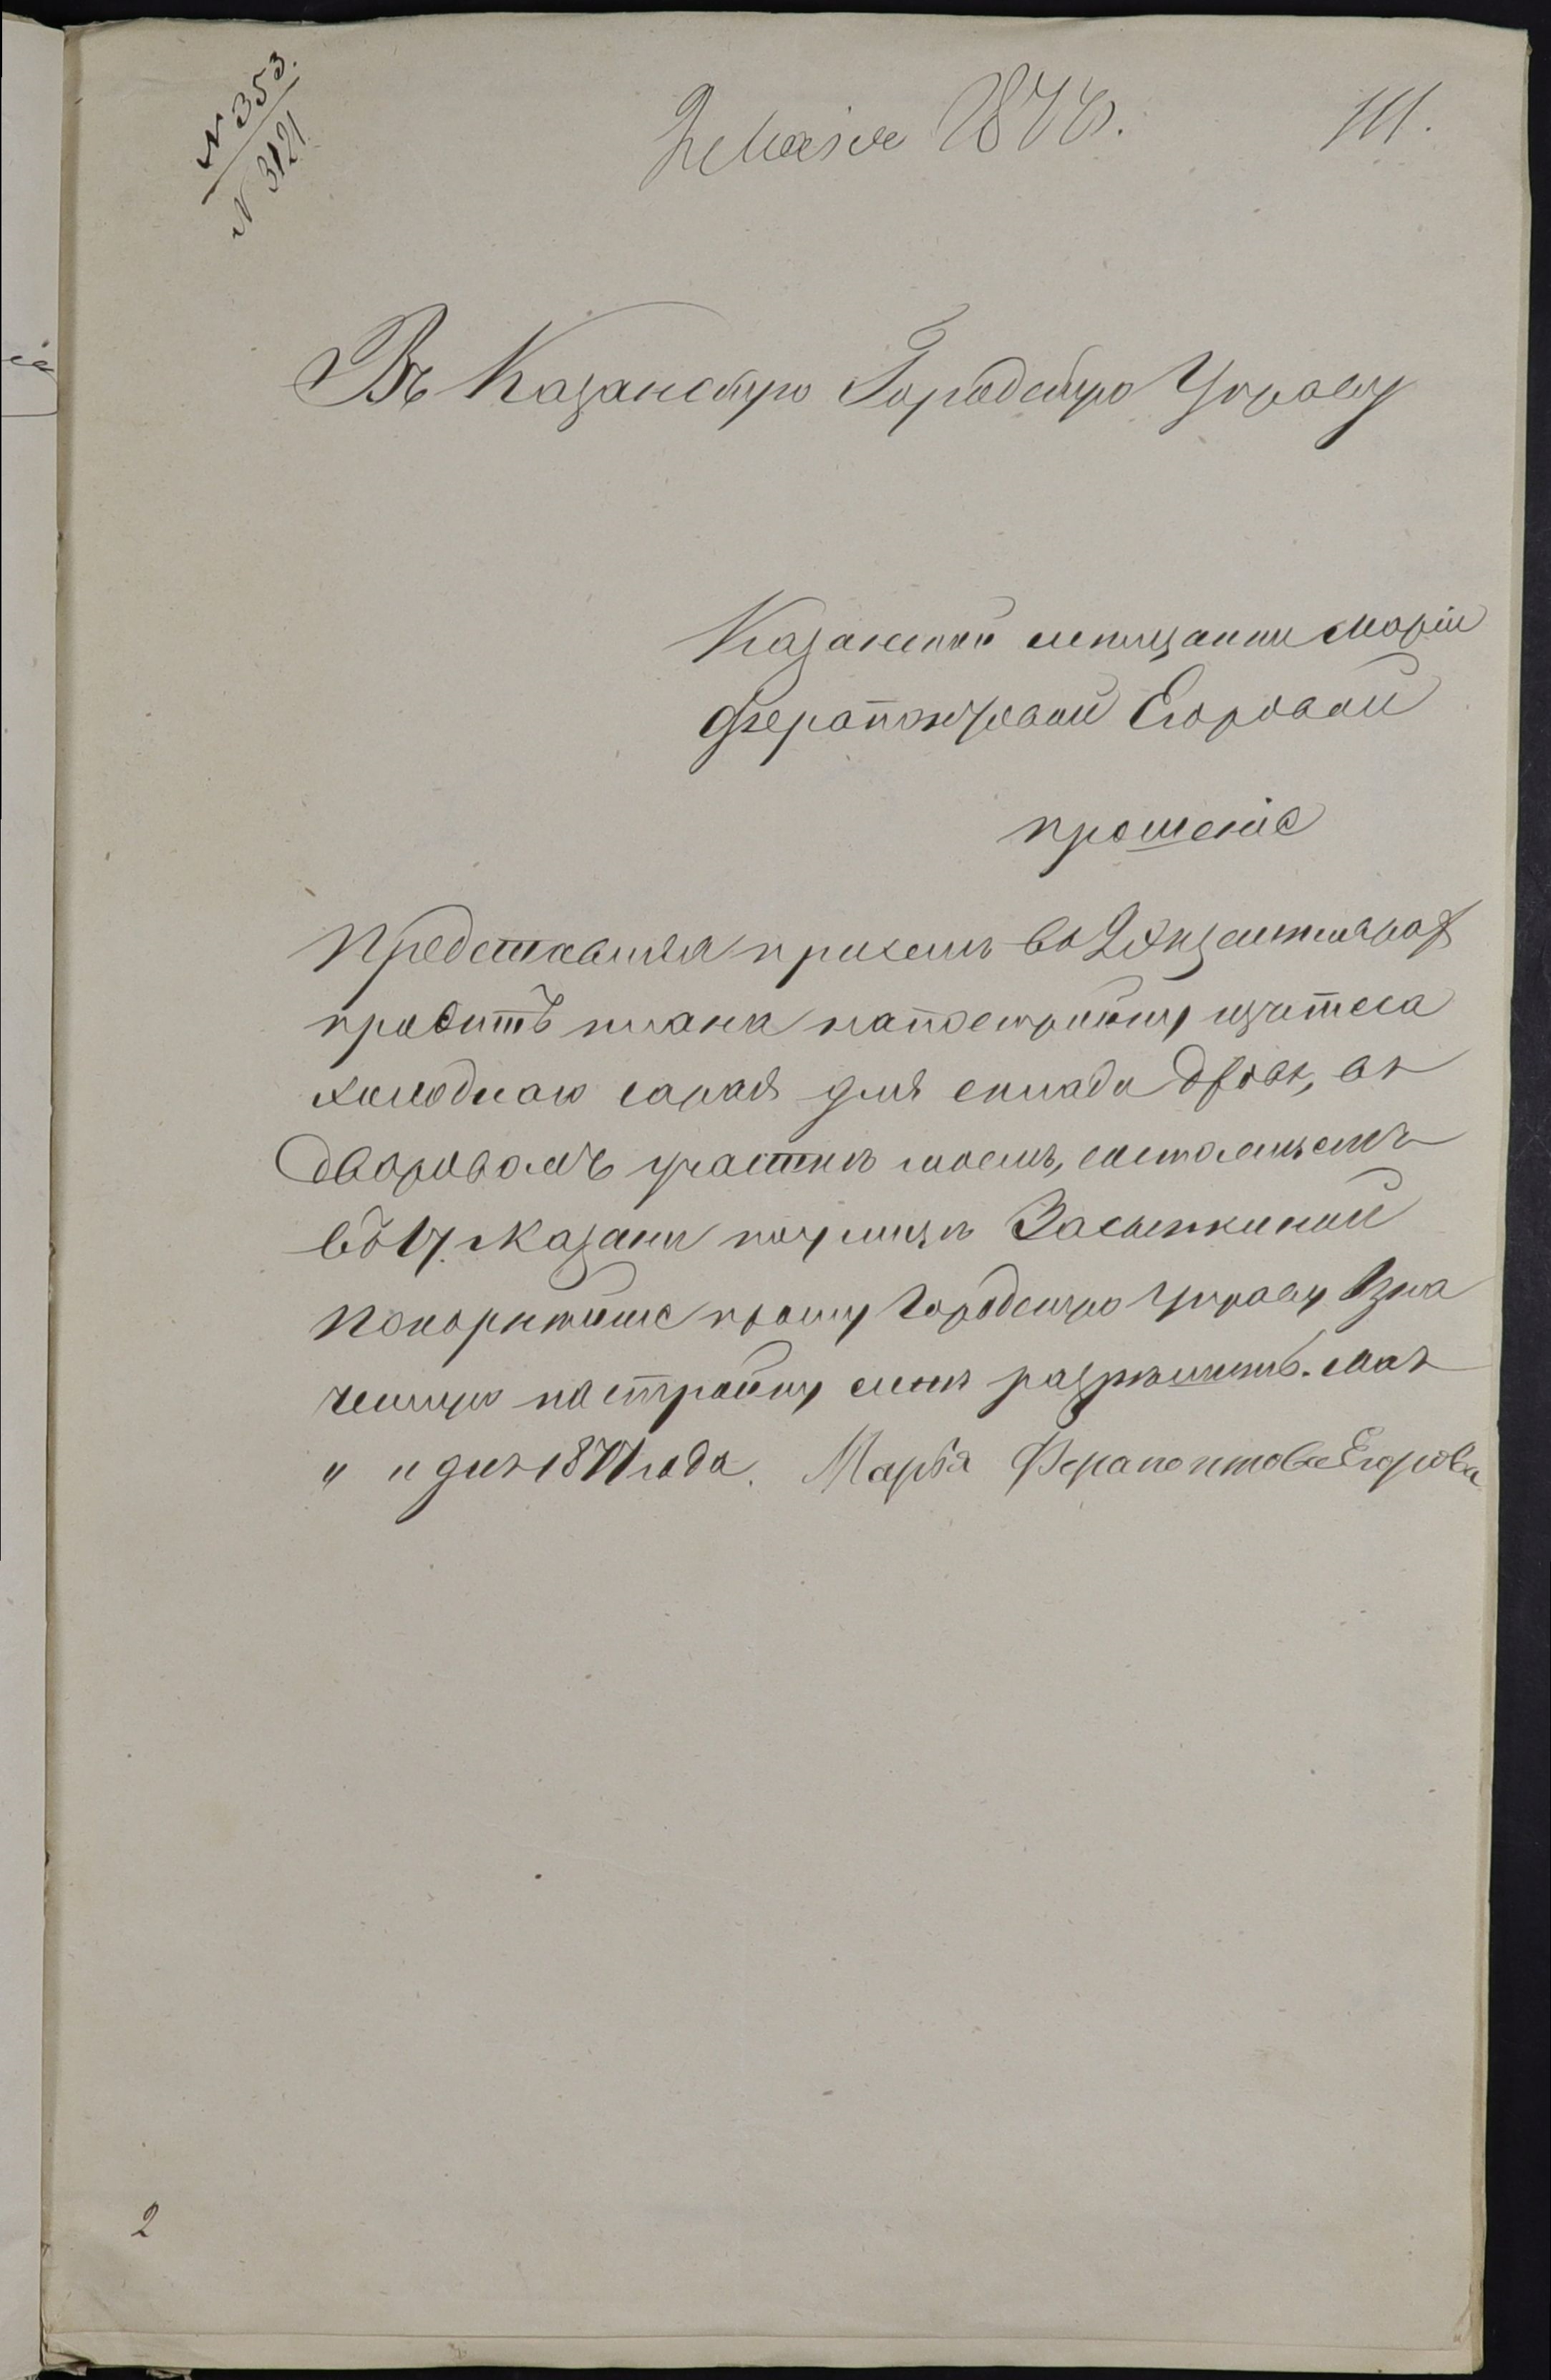 N 353.
N 3121.
2 Мая 1877 г.
111.
Въ Казанскую Городскую Управу
Казанской мещанки Маріи
Ферапонтовой Егоровой
прошеніе
Представляя при семъ въ 2х экземплярах
проектъ плана на постройку изъ теса
холоднаго сарая для склада дровъ, въ
дворовомъ участке моемъ, состоящемъ
въ г. Казани по улице Засыпкиной
покорнейше прошу Городскую Управу Озна
ченную постройку мне разрешить. Мая
„ „ дня 1877 года. Марья Ферапонтова Егорова
2